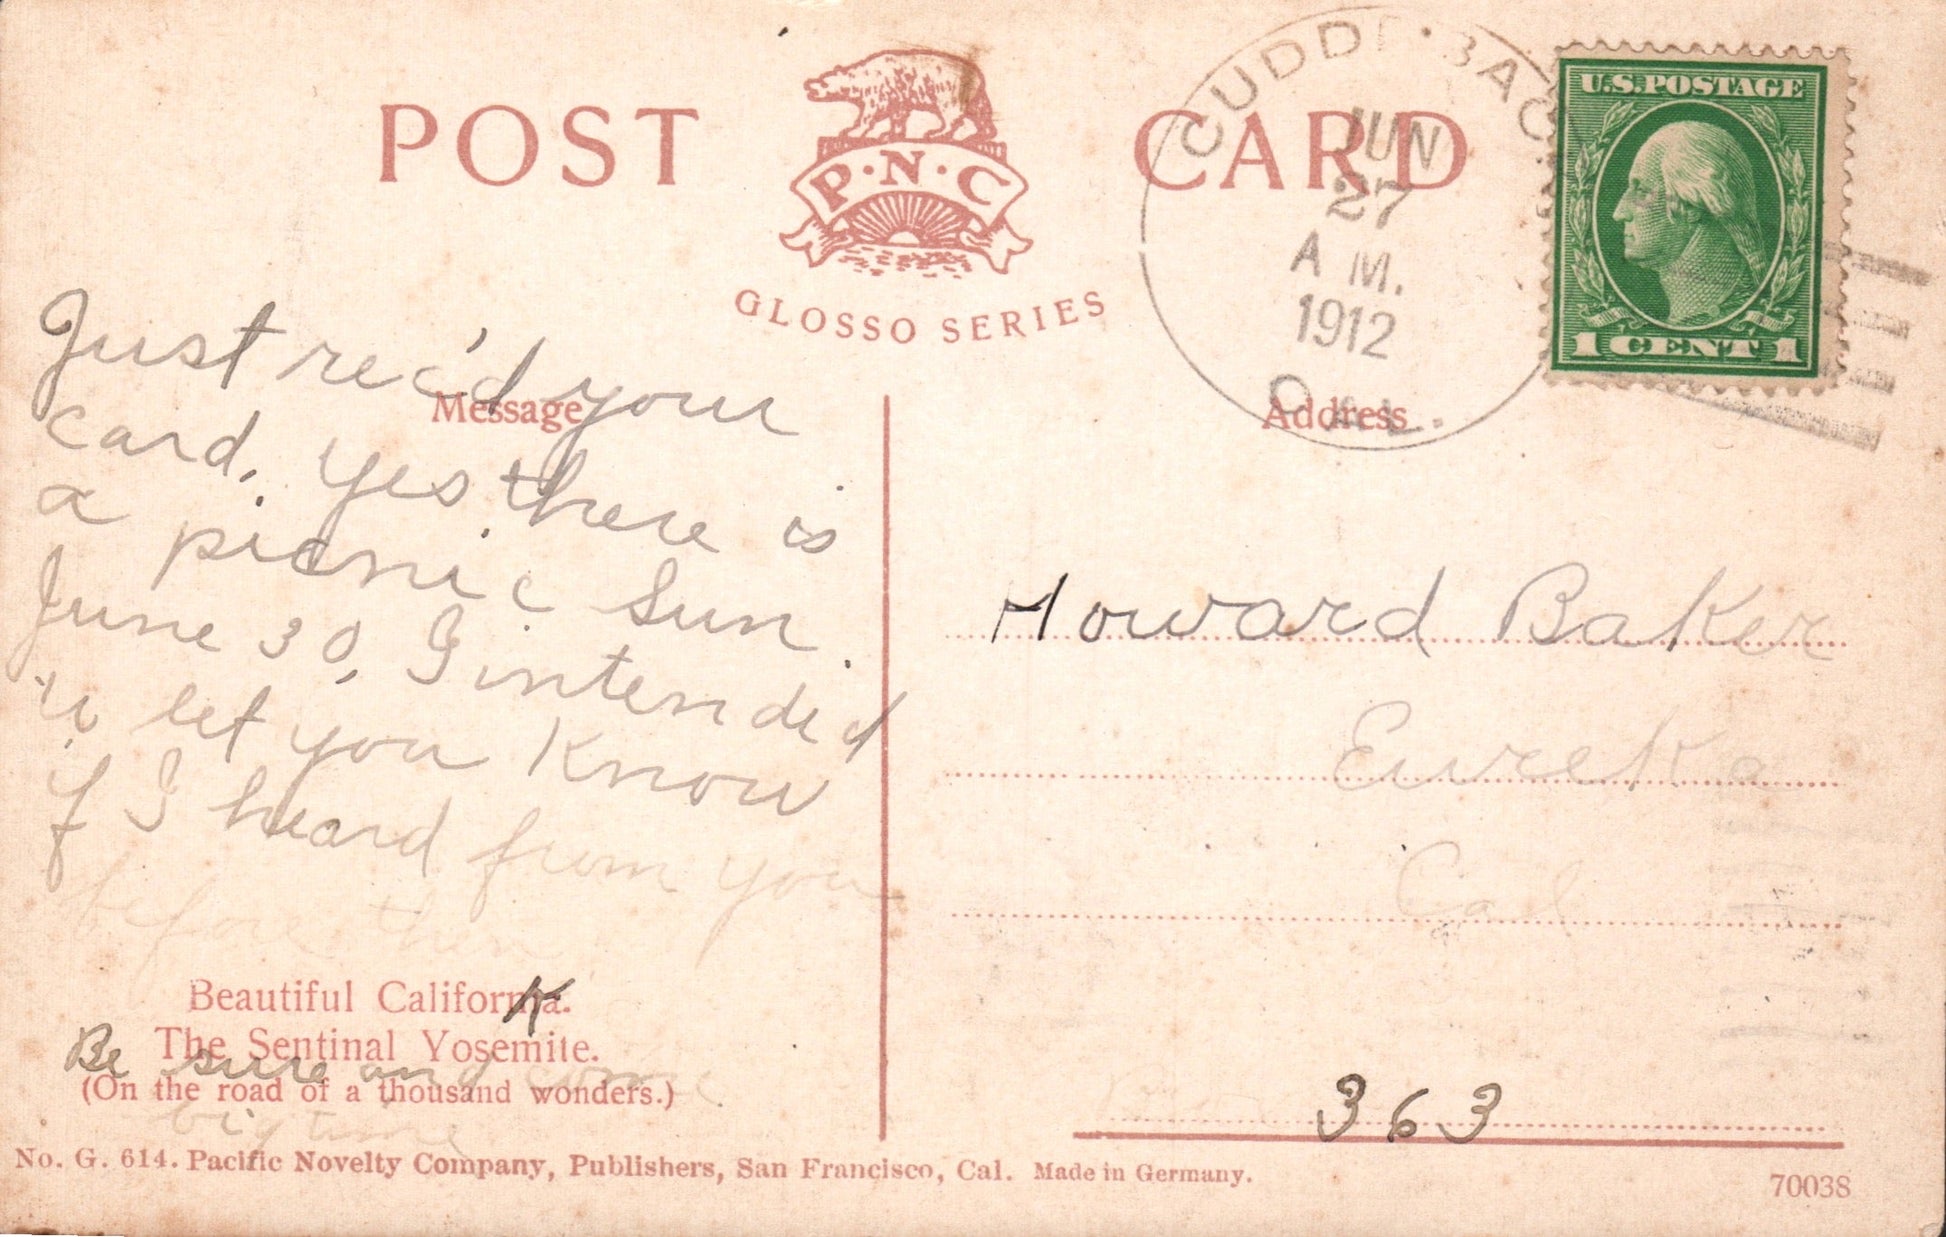 POST CARD
P·N·C
GLOSSO SERIES
CUDDE·BACK
JUN
27
A M.
1912
CAL.
U.S.POSTAGE
1 CENT 1
Message
Address
Just rec'd your
card. Yes there is
a picnic Sun.
June 30, I intendid
to let you Know
if I heard from you
before then.
K
Be sure and come
big time
Howard Baker
Eureka
Cal
363
Beautiful California.
The Sentinal Yosemite.
(On the road of a thousand wonders.)
No. G. 614. Pacific Novelty Company, Publishers, San Francisco, Cal. Made in Germany.
70038